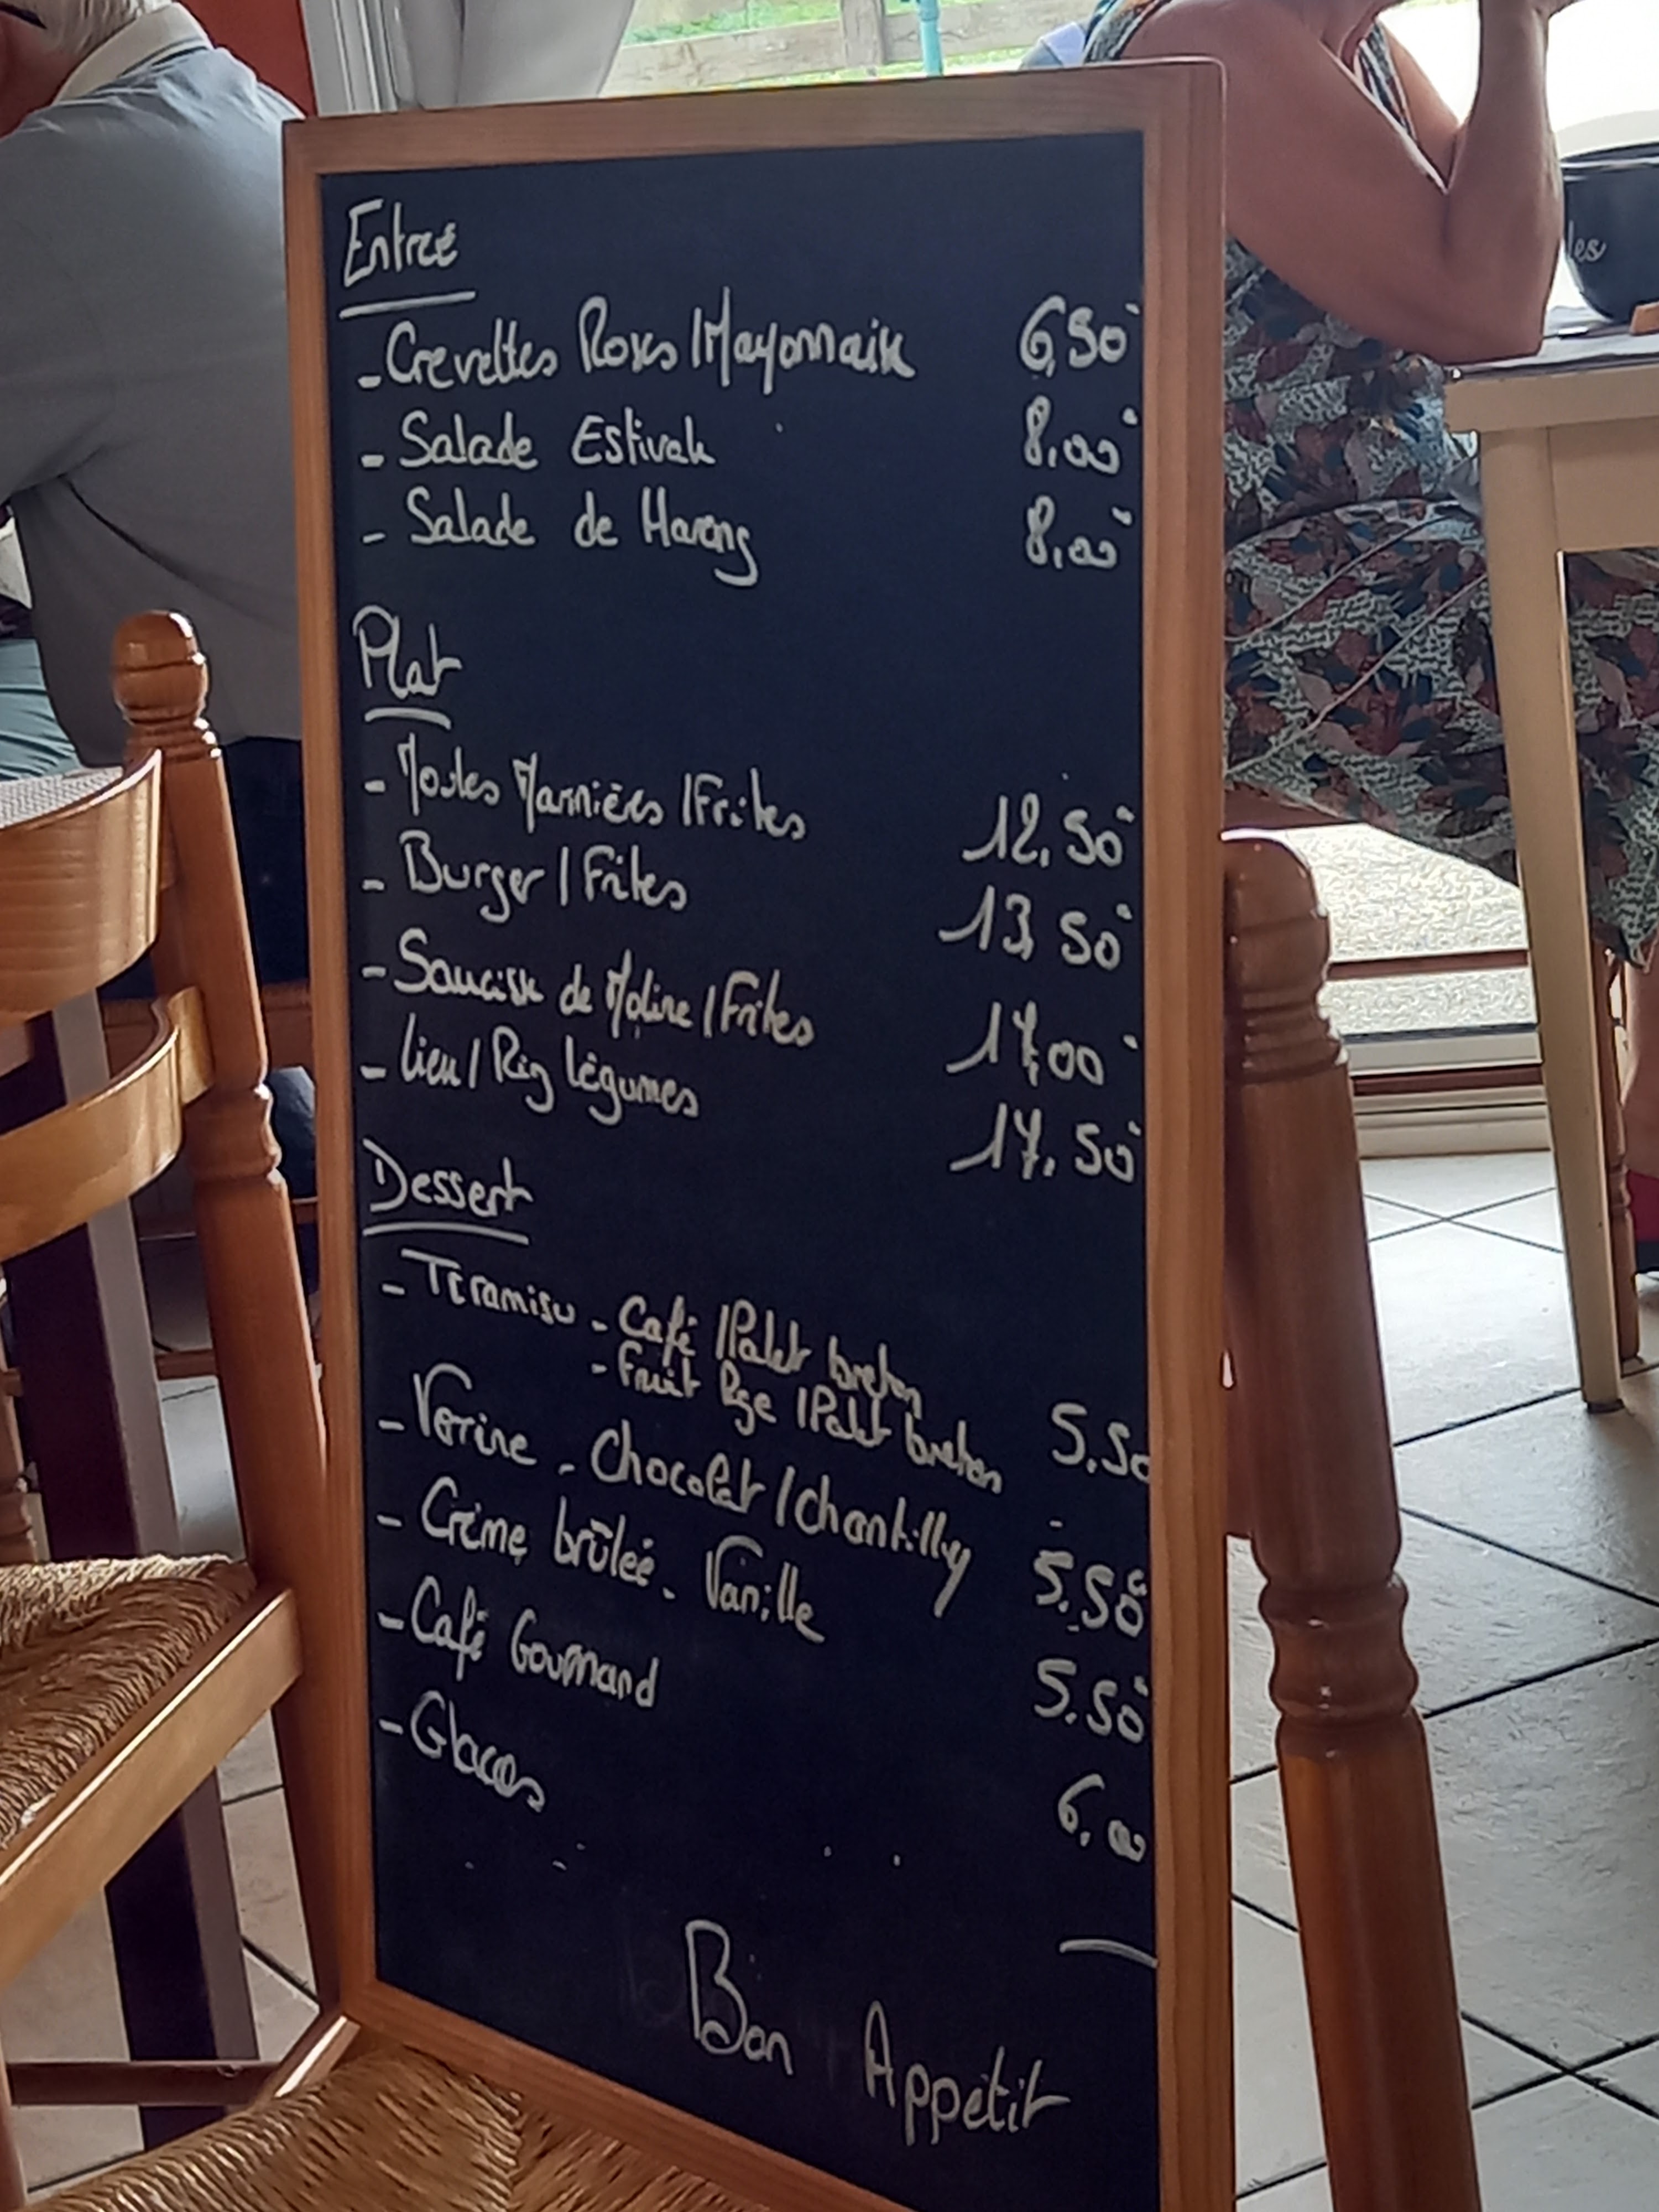 Entrée
- Crevettes Roses / Mayonnaise 6,50
- Salade Estivale 8,00
- Salade de Hareng 8,00
Plat
- Moules Marinières / Frites 12,50
- Burger / Frites 13,50
- Saucisse de Molène / Frites 17,00
- Lieu / Riz légumes 17,50
Dessert
- Tiramisu - Café / Palet breton
- Fruit Rge / Palet breton 5,50
- Verrine - Chocolat / Chantilly 5,50
- Crème brûlée - Vanille 5,50
- Café Gourmand 6,00
- Glaces
Bon Appétit
les